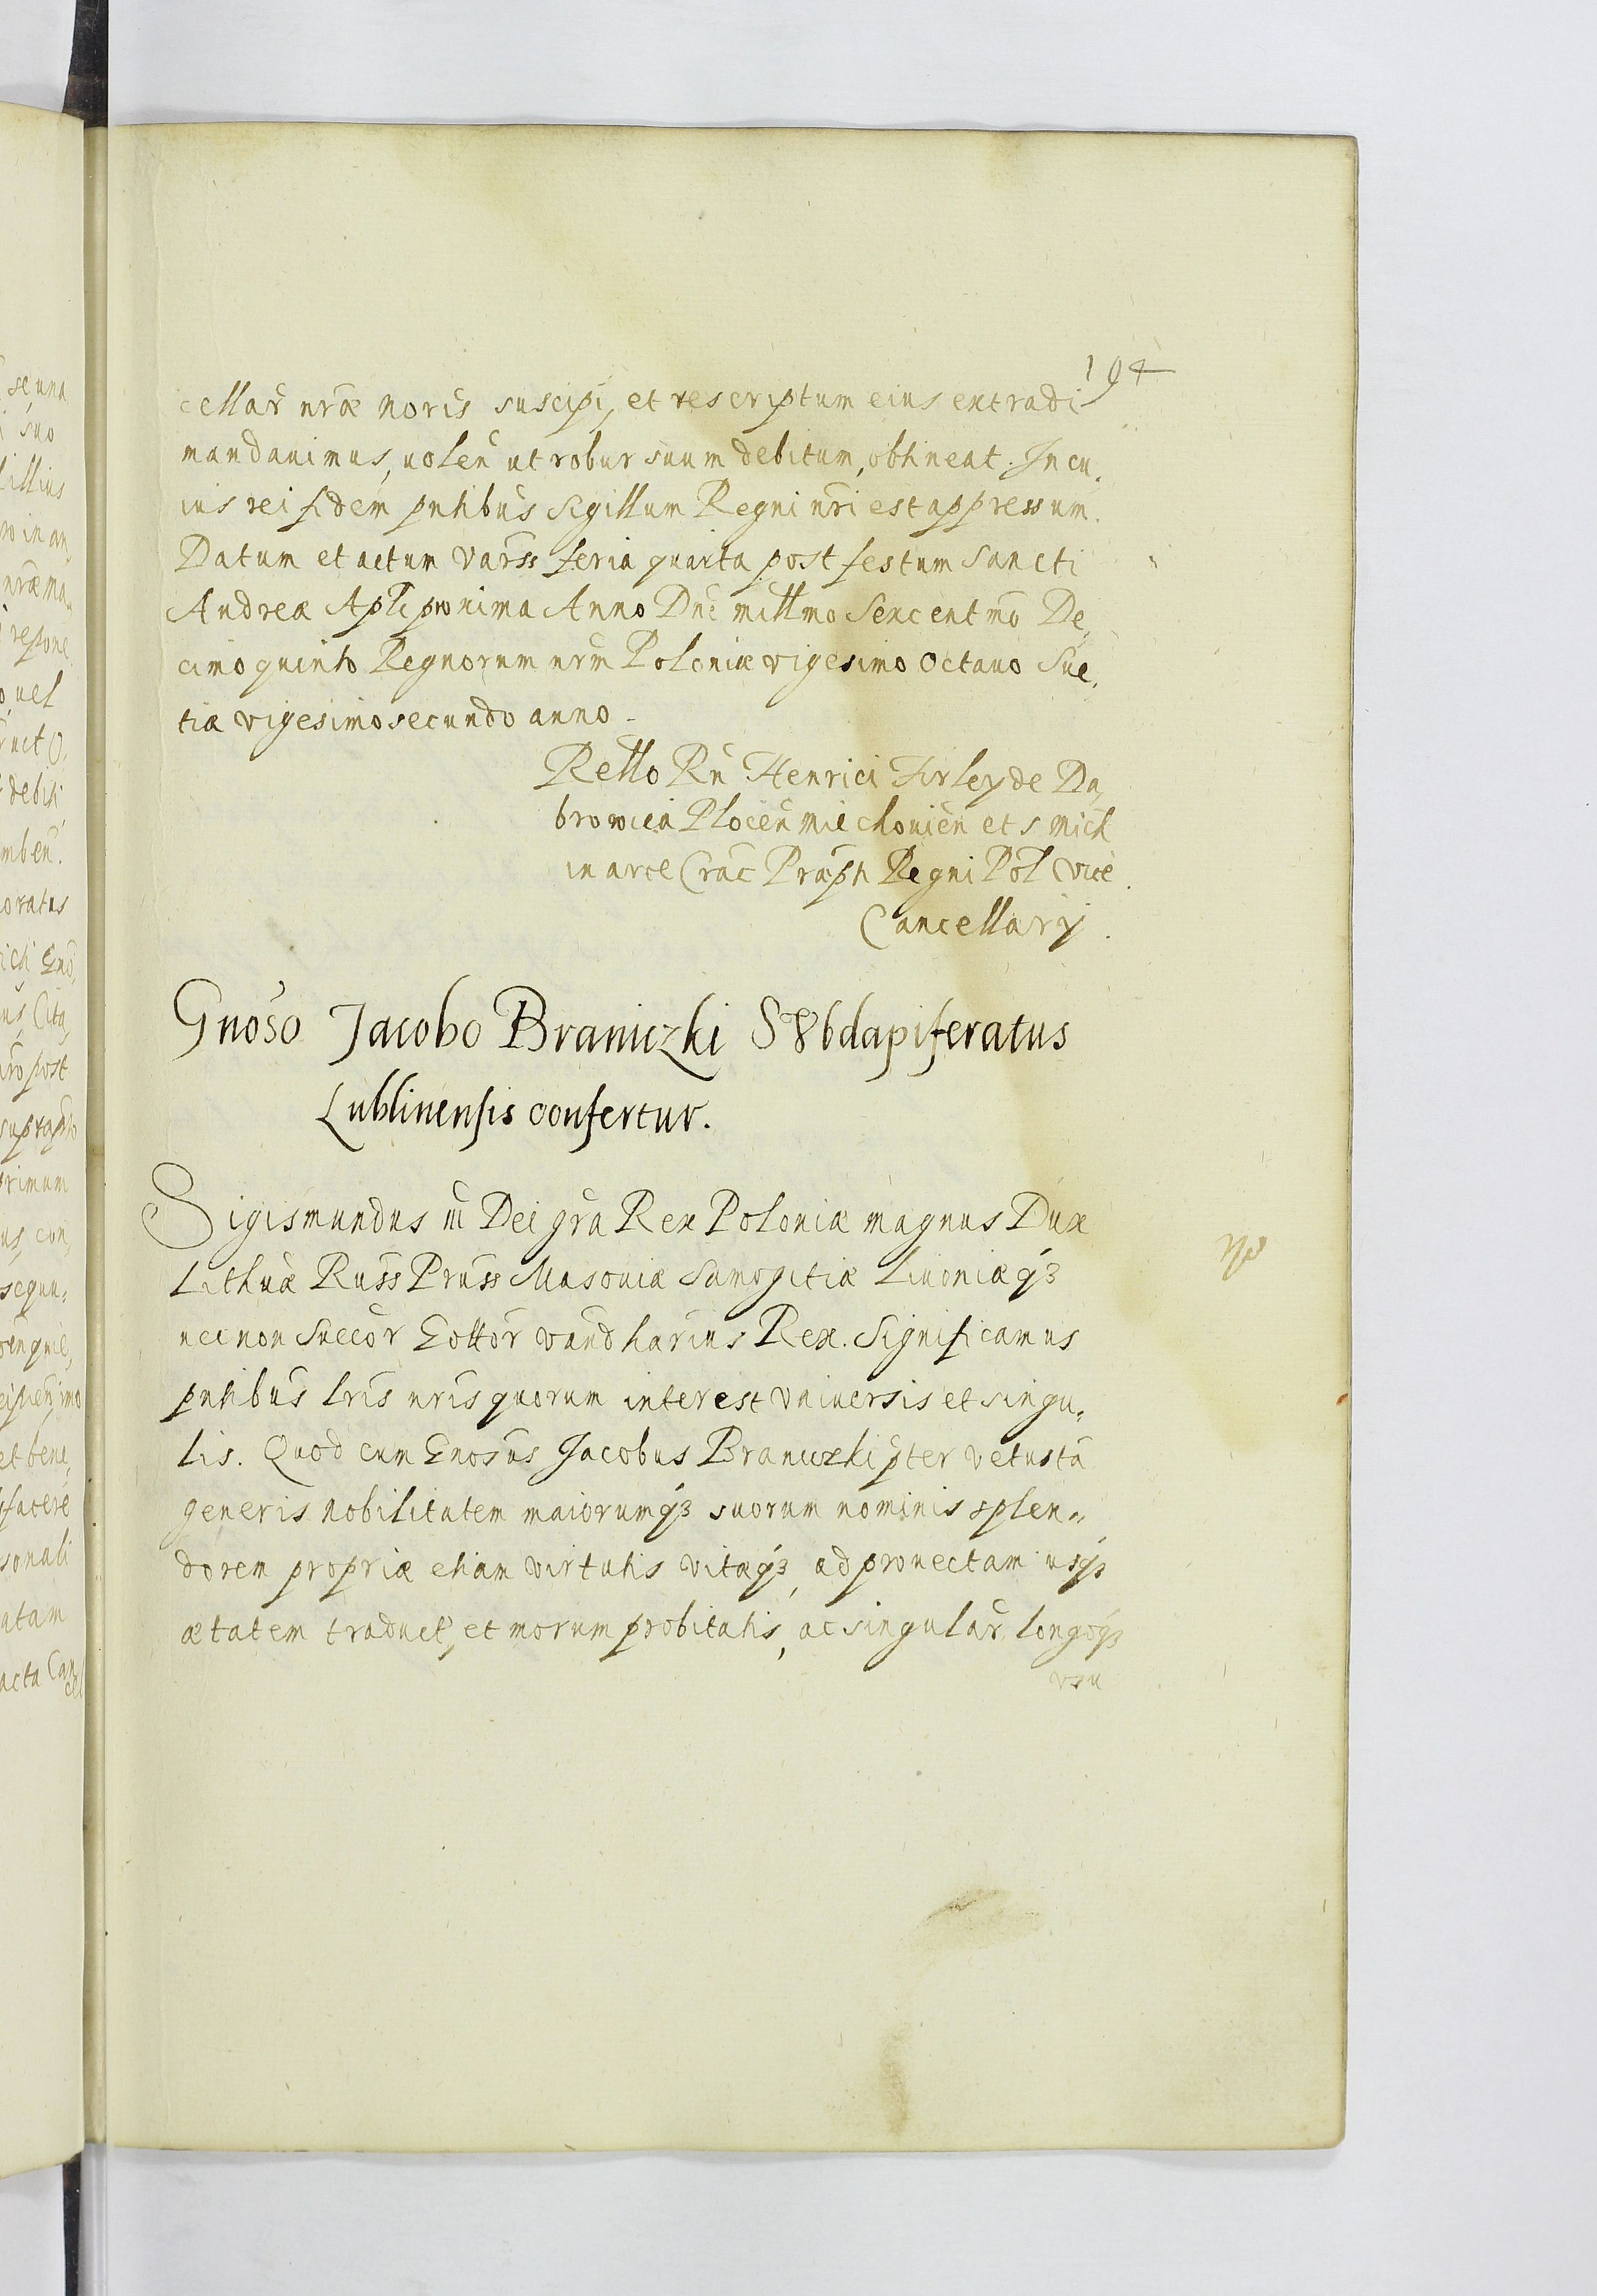 194
cellar nræ noris suscipi, et rescriptum eius extradi
mandauimus, uolen̄ ut robur suum debitum, obtineat. In cu,
ius rei fidem pntibus Sigillum Regni nri est appressum.
Datum et actum Varss feria quarta post festum Sancti
Andreæ Apli proxima Anno Dni millmo Sexcentmo De,
cimo quinto Regnorum nrm Poloniæ vigesimo octauo Sue,
tiæ vigesimo secundo anno -
Rello Rn Henrici Firley de Da,
browica Plocen Miechouien et S Mich
in arce Crac Præpti Regni Pol Vice
Cancellarij.
Gnoso Jacobo Braniczki SVbdapiferatus
Lublinensis confertur.
Sigismundus III Dei gra Rex Poloniæ magnus Dux
Lithuæ Russ Pruss Masouiæ Samogitiæ Liuoniæq3
necnon Suecor Gottor Vandhærius Rex. Significamus
pntibus lris nris quorum interest Vniuersis et singu,
lis. Quod cum Gnosus Jacobus Braniczki pter vetustā
generis nobilitatem maiorumq3 suorum nominis splen„
dorem propriæ etiam virtutis vitæq3, ad prouectam usq3
ætatem traduct, et morum probitatis, ac singular longoq3
vsu
se una
suo
illius
in an,
nræ ma„
uel
debiti
oratus
post
primum
us, con,
sequu,
et bene,
facere
sonali
atam
acta Can
cel